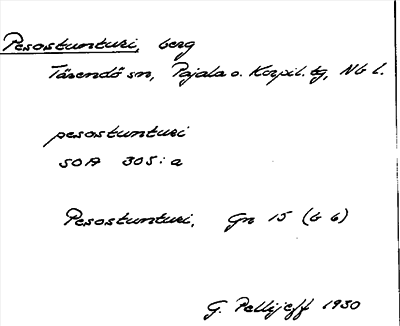 Pesostunturi, berg
Tärendö sn, Pajala o. Korpil. tg, Nb l.
pesostunturi
SOA 305:a
Pesostunturi, Gn 15 (b 6)
G. Pellijeff 1930